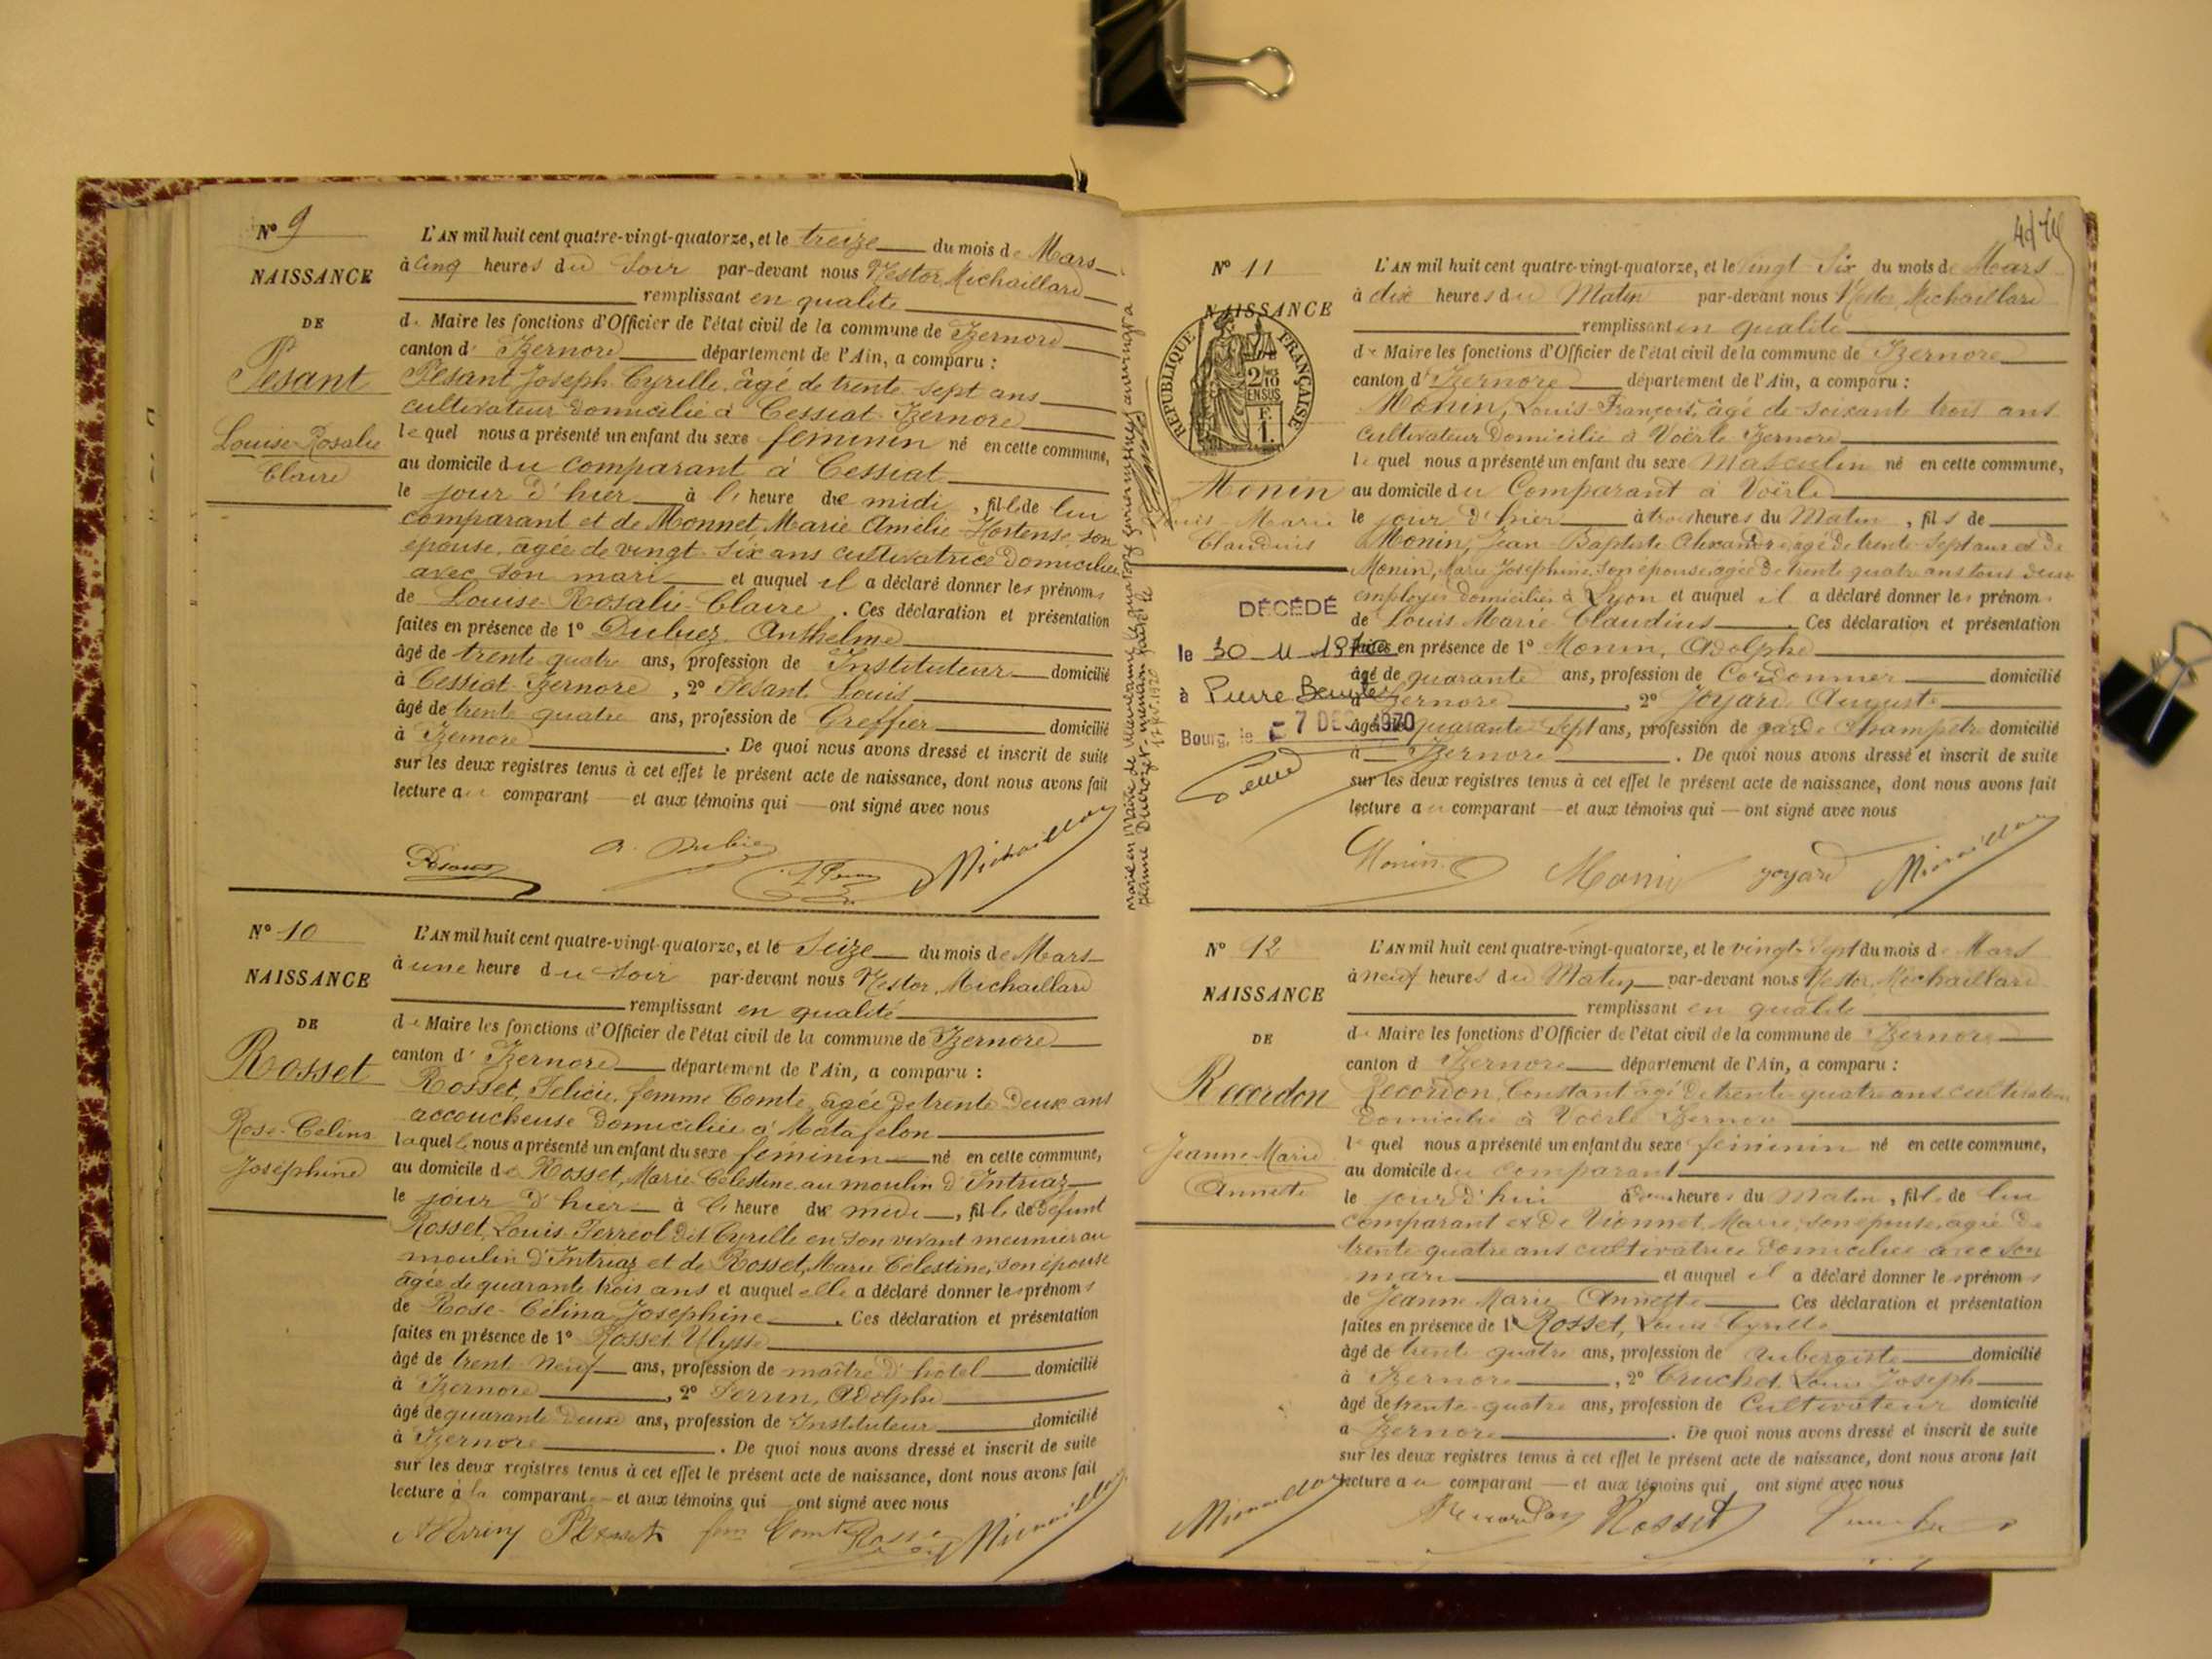 N° 9
NAISSANCE
DE
Pesant
Louise-Rosalie
Claire
L'AN mil huit cent quatre-vingt-quatorze, et le treize du mois de Mars
à Cinq heures du Soir par-devant nous Nestor Michaillard
remplissant en qualité
de Maire les fonctions d'Officier de l'état civil de la commune de Izernore
canton d' Izernore département de l'Ain, a comparu :
Pesant, Joseph Cyrille, âgé de trente sept ans
cultivateur domicilié à Cessiat Izernore
lequel nous a présenté un enfant du sexe féminin né en cette commune,
au domicile du comparant à Cessiat
le jour d'hier à l' heure de midi, fille de lui
comparant et de Monnet, Marie Amélie Hortense, son
épouse, âgée de vingt-six ans cultivatrice domiciliée
avec son mari et auquel il a déclaré donner les prénoms
de Louise-Rosalie-Claire. Ces déclaration et présentation
faites en présence de 1° Dubiez Anthelme
âgé de trente quatre ans, profession de Instituteur domicilié
à Cessiat Izernore, 2° Pesant Louis
âgé de trente quatre ans, profession de Greffier domicilié
à Izernore. De quoi nous avons dressé et inscrit de suite
sur les deux registres tenus à cet effet le présent acte de naissance, dont nous avons fait
lecture au comparant et aux témoins qui ont signé avec nous
A. Dubiez Michaillard
N° 10
NAISSANCE
DE
Rosset
Rose-Célina
Joséphine
L'AN mil huit cent quatre-vingt-quatorze, et le Seize du mois de Mars
à une heure du Soir par-devant nous Nestor Michaillard
remplissant en qualité
de Maire les fonctions d'Officier de l'état civil de la commune de Izernore
canton d' Izernore département de l'Ain, a comparu :
Rosset, Félicie, femme Comte, âgée de trente deux ans
accoucheuse domiciliée à Matafelon
laquelle nous a présenté un enfant du sexe féminin né en cette commune,
au domicile de Rosset, Marie Célestine au moulin d'Intriaz
le jour d'hier à l' heure de midi, fille de défunt
Rosset, Louis Ferréol dit Cyrille en son vivant meunier au
moulin d'Intriaz et de Rosset, Marie Célestine, son épouse
âgée de quarante trois ans et auquel elle a déclaré donner les prénoms
de Rose-Célina Joséphine. Ces déclaration et présentation
faites en présence de 1° Rosset Ulysse
âgé de trente neuf ans, profession de maître d'hôtel domicilié
à Izernore, 2° Perrin, Adolphe
âgé de quarante deux ans, profession de Instituteur domicilié
à Izernore. De quoi nous avons dressé et inscrit de suite
sur les deux registres tenus à cet effet le présent acte de naissance, dont nous avons fait
lecture à la comparante et aux témoins qui ont signé avec nous
A Perrin Rosset fem Comte Rosset Michaillard
4
N° 11
NAISSANCE
RÉPUBLIQUE FRANÇAISE
2/10 EN SUS
Monin
Louis-Marie
Claudius
DÉCÉDÉ
le 30-11-1970
à Pierre Bénite
Bourg, le - 7 DEC 1970
L'AN mil huit cent quatre-vingt-quatorze, et le Vingt Six du mois de Mars
à dix heures du Matin par-devant nous Nestor Michaillard
remplissant en qualité
de Maire les fonctions d'Officier de l'état civil de la commune de Izernore
canton d' Izernore département de l'Ain, a comparu :
Monin, Louis-François, âgé de soixante trois ans
Cultivateur domicilié à Voërle Izernore
lequel nous a présenté un enfant du sexe Masculin né en cette commune,
au domicile du Comparant à Voërle
le jour d'hier à trois heures du Matin, fils de
Monin, Jean-Baptiste Alexandre, âgé de trente-sept ans et de
Monin, Marie Joséphine, son épouse, âgée de trente quatre ans tous deux
employés domiciliés à Lyon et auquel il a déclaré donner les prénoms
de Louis Marie Claudius. Ces déclaration et présentation
faites en présence de 1° Monin, Adolphe
âgé de quarante ans, profession de Cordonnier domicilié
à Izernore, 2° Joyard Auguste
âgé de quarante sept ans, profession de garde Champêtre domicilié
à Izernore. De quoi nous avons dressé et inscrit de suite
sur les deux registres tenus à cet effet le présent acte de naissance, dont nous avons fait
lecture au comparant et aux témoins qui ont signé avec nous
Monin Monin Joyard Michaillard
N° 12
NAISSANCE
DE
Recordon
Jeanne Marie
Annette
L'AN mil huit cent quatre-vingt-quatorze, et le vingt-Sept du mois de Mars
à neuf heures du Matin par-devant nous Nestor Michaillard
remplissant en qualité
de Maire les fonctions d'Officier de l'état civil de la commune de Izernore
canton d Izernore département de l'Ain, a comparu :
Recordon, Constant âgé de trente-quatre ans cultivateur
domicilié à Voërle Izernore
lequel nous a présenté un enfant du sexe féminin né en cette commune,
au domicile du comparant
le jour d'hui à deux heures du Matin, fille de lui
comparant et de Vionnet, Marie, son épouse, âgée de
trente-quatre ans cultivatrice domiciliée avec son
mari et auquel il a déclaré donner les prénoms
de Jeanne Marie Annette. Ces déclaration et présentation
faites en présence de 1° Rosset, Louis Cyrille
âgé de trente quatre ans, profession de Aubergiste domicilié
à Izernore, 2° Cruchet Louis Joseph
âgé de trente-quatre ans, profession de Cultivateur domicilié
à Izernore. De quoi nous avons dressé et inscrit de suite
sur les deux registres tenus à cet effet le présent acte de naissance, dont nous avons fait
lecture au comparant et aux témoins qui ont signé avec nous
Michaillard Recordon Rosset